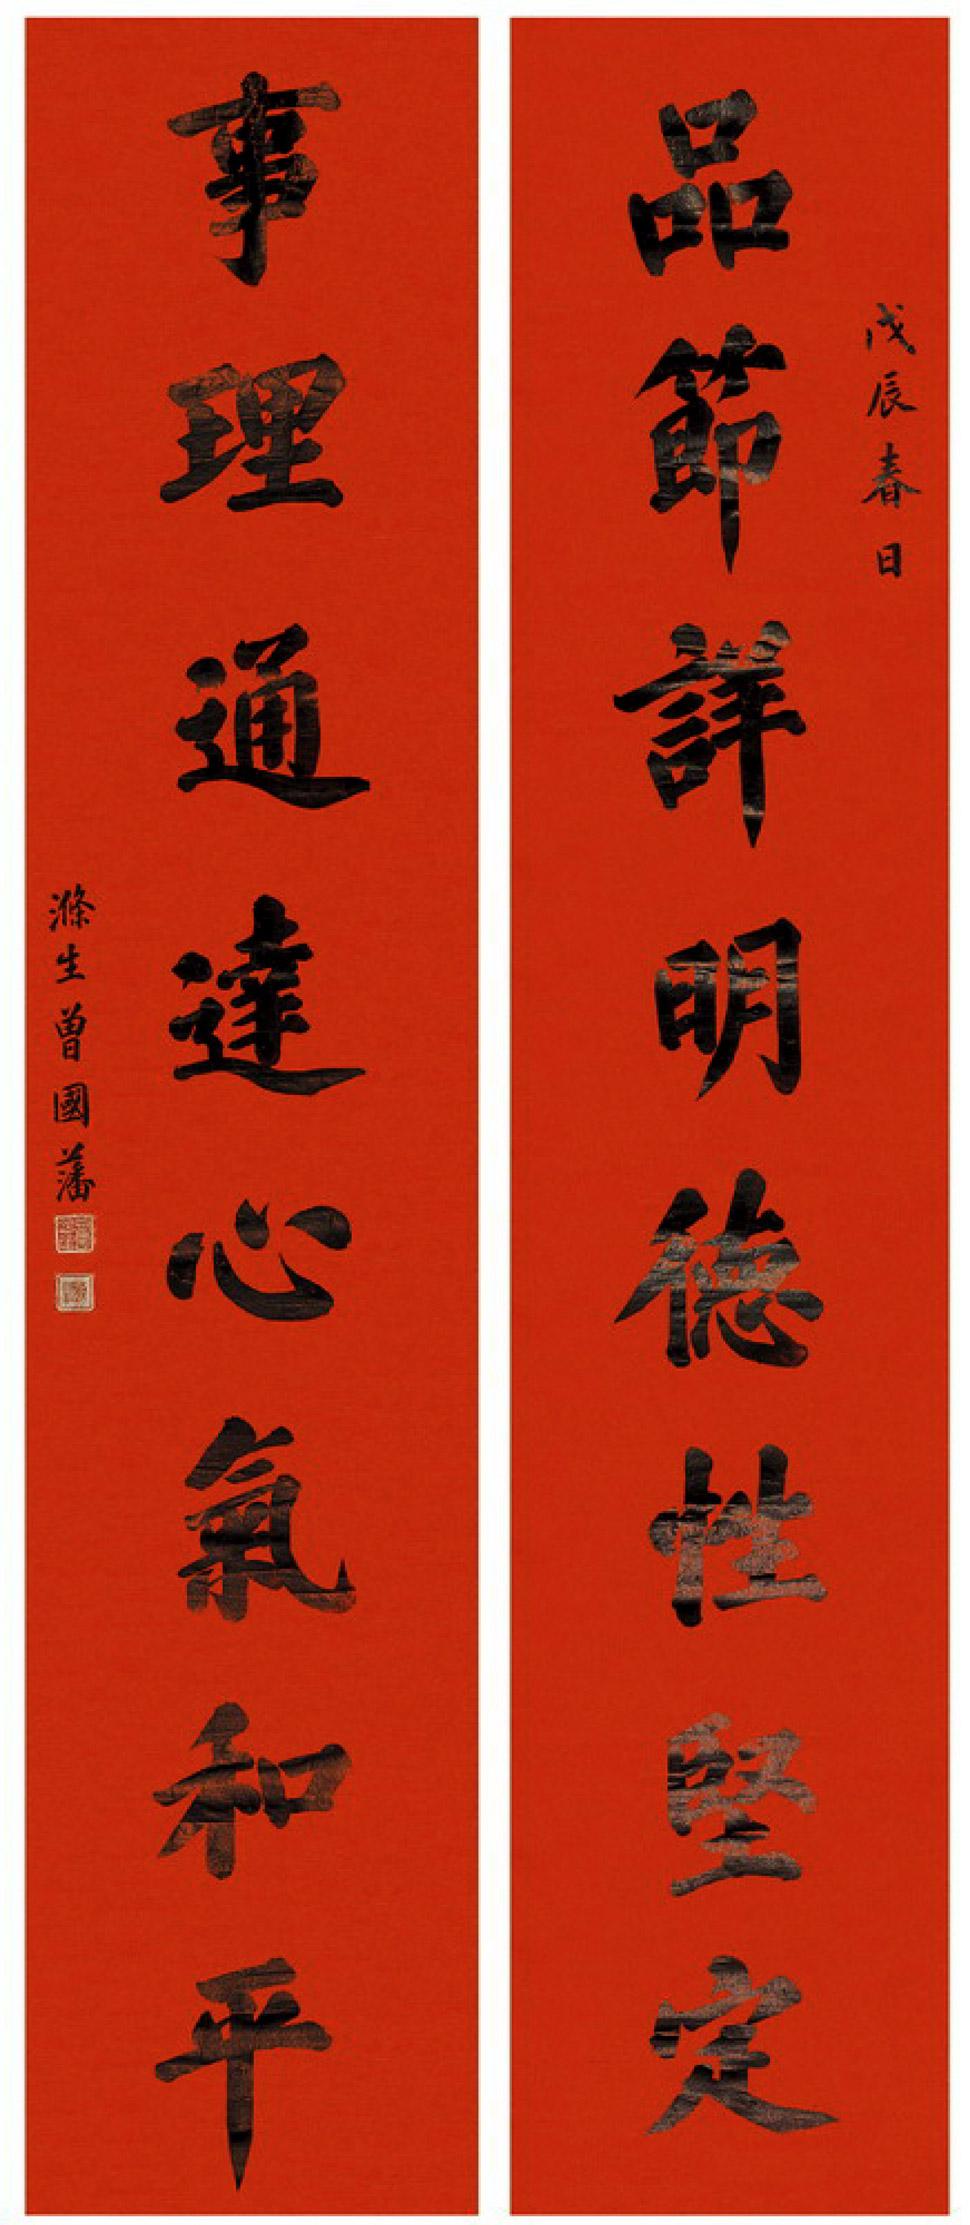 戊辰春日
品節詳明德性堅定
事理通達心氣和平
滌生曾國藩